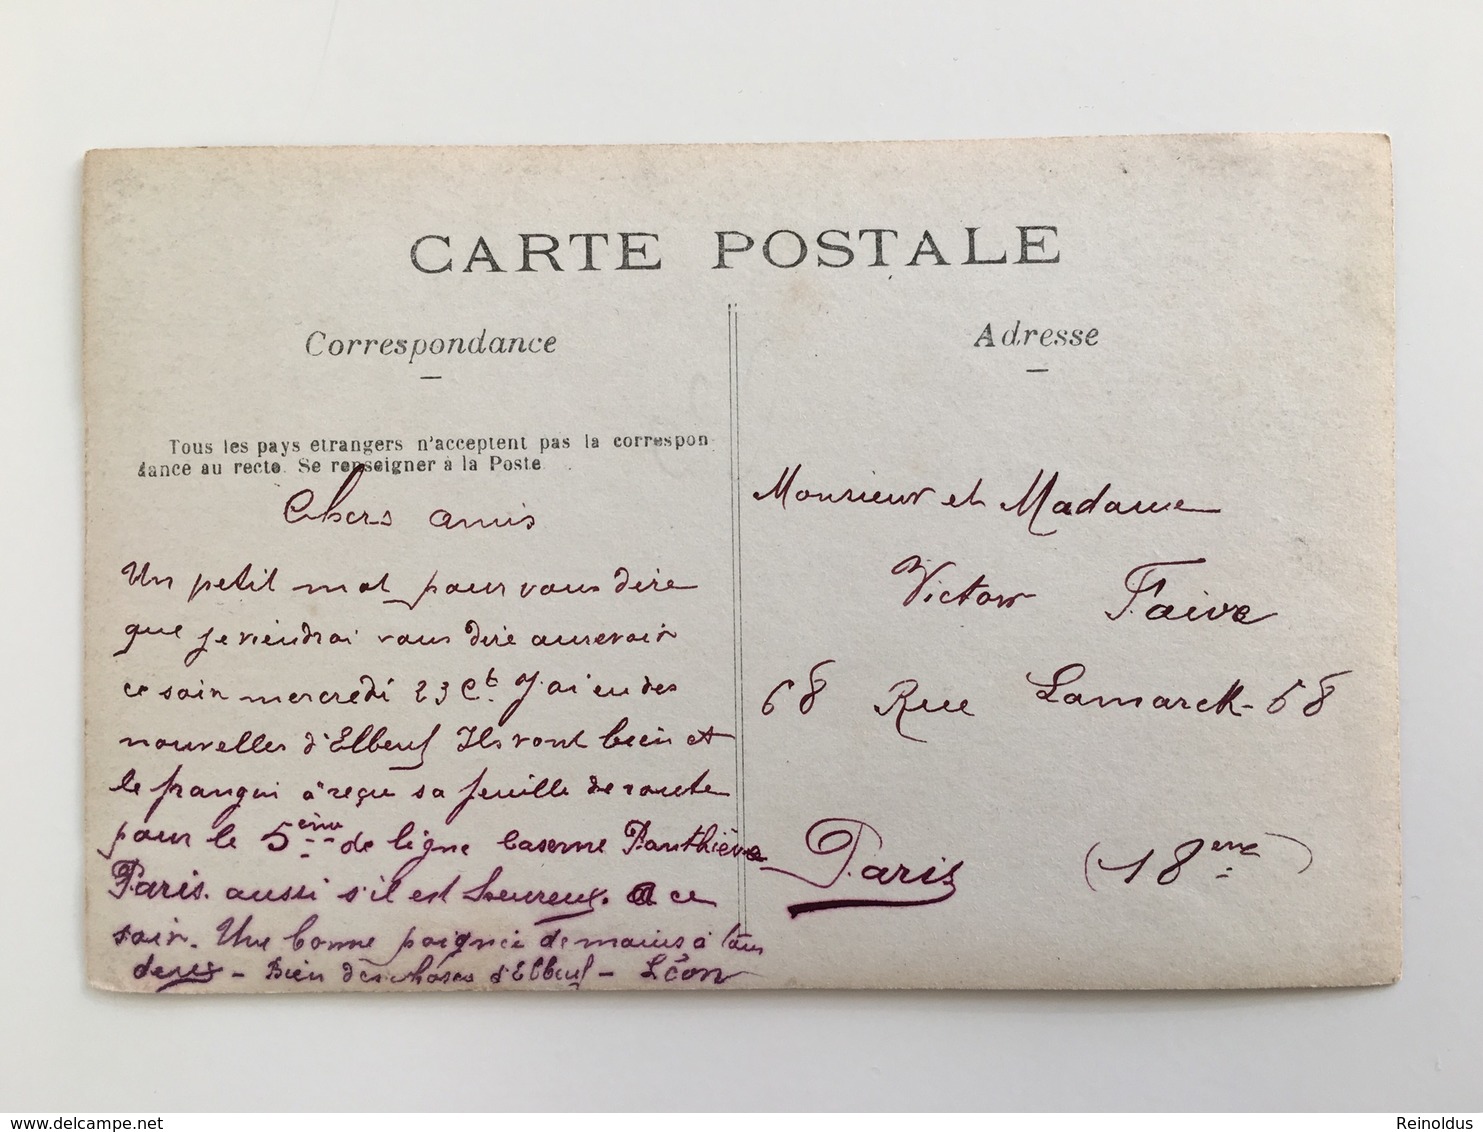 CARTE POSTALE
Correspondance
Tous les pays etrangers n'acceptent pas la correspon
dance au recto. Se renseigner à la Poste
Chers amis
Un petit mot pour vous dire
que je viendrai vous dire aurevoir
ce soir mercredi 23 Ct. J'ai eu des
nouvelles d'Elbeuf Ils vont bien et
le frangin à reçu sa feuille de route
pour le 5ème de ligne Caserne Panthièvre
Paris. aussi s'il est heureux. a ce
soir. Une bonne poignée de mains à tous
deux - Bien des choses d'Elbeuf - Léon
Adresse
Monsieur et Madame
Victor Faivre
68 Rue Lamarck - 68
Paris (18eme)
delcampe.net
Reinoldus